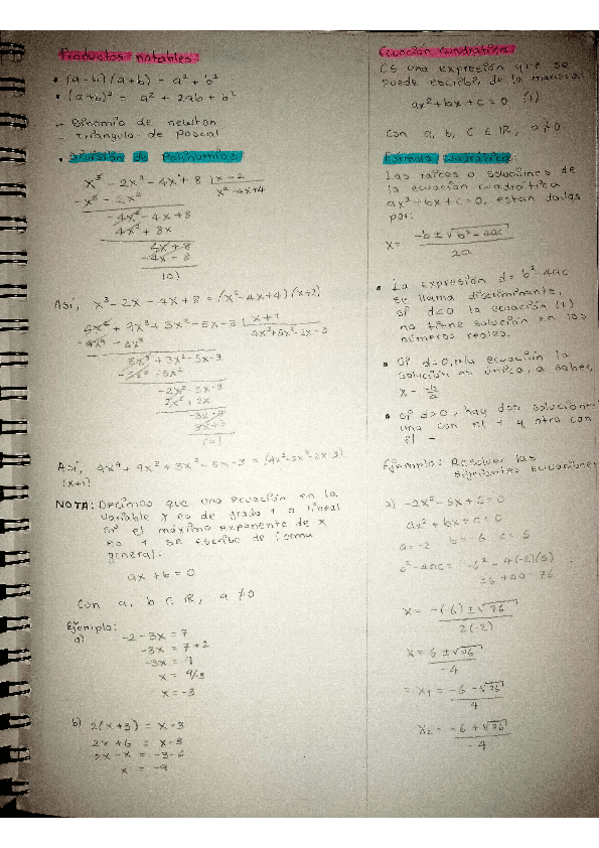 Productos notables:
• (a-b)(a+b) = a² + b²
• (a+b)² = a² + 2ab + b²
- Binomio de newton
- Triangulo de Pascal
• División de Polinomios
x³ - 2x² - 4x + 8 | x-2
-x³ - 2x² x² - 4x + 4
-4x² - 4x + 8
4x² + 8x
4x + 8
-4x - 8
(0)
Así, x³ - 2x - 4x + 8 = (x² - 4x + 4)(x+2)
4x⁴ + 9x³ + 3x² - 5x - 3 | x+1
-4x⁴ - 4x³ 4x³+5x²-2x-3
5x³ + 3x² - 5x - 3
-5x³ - 5x²
-2x² - 5x - 3
2x² + 2x
-3x - 3
3x + 3
(0)
Así, 4x⁴ + 9x³ + 3x² - 5x - 3 = (4x³ - 5x² - 2x - 3)
(x+1)
NOTA: Decimos que una ecuación en la
variable x es de grado 1 o lineal
si el máximo exponente de x
es 1 se escribe de forma
general.
ax + b = 0
Con a, b ∈ ℝ, a ≠ 0
Ejemplo:
a) -2 - 3x = 7
-3x = 7 + 2
-3x = 9
x = 9/-3
x = -3
b) 2(x+3) = x - 3
2x + 6 = x - 3
2x - x = -3 - 6
x = -9
Ecuación cuadrática:
Es una expresión que se
puede escribir de la manera:
ax² + bx + c = 0 (1)
Con a, b, c ∈ ℝ, a ≠ 0
Formula cuadrática:
Las raíces o soluciones de
la ecuación cuadrática
ax² + bx + c = 0, están dadas
por:
x = -b ± √b² - 4ac
2a
• La expresión d = b² - 4ac
se llama discriminante,
si d<0 la ecuación (1)
no tiene solución en los
números reales.
• Si d = 0, la ecuación la
solución es única, a saber,
x = -b/2a
• si d > 0, hay dos soluciones
una con el + y otra con
el -
Ejemplo: Resolver las
siguientes ecuaciones
a) -2x² - 6x + 5 = 0
ax² + bx + c = 0
a = -2 b = -6 c = 5
b² - 4ac = -6² - 4(-2)(5)
36 + 40 = 76
x = -(-6) ± √76
2(-2)
x = 6 ± √76
-4
= x₁ = -6 - √76
4
x₂ = -6 + √76
-4